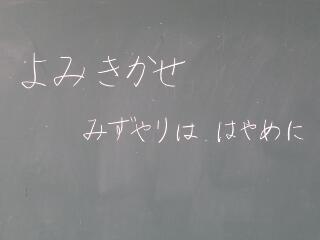 よみきかせ
みずやりは はやめに